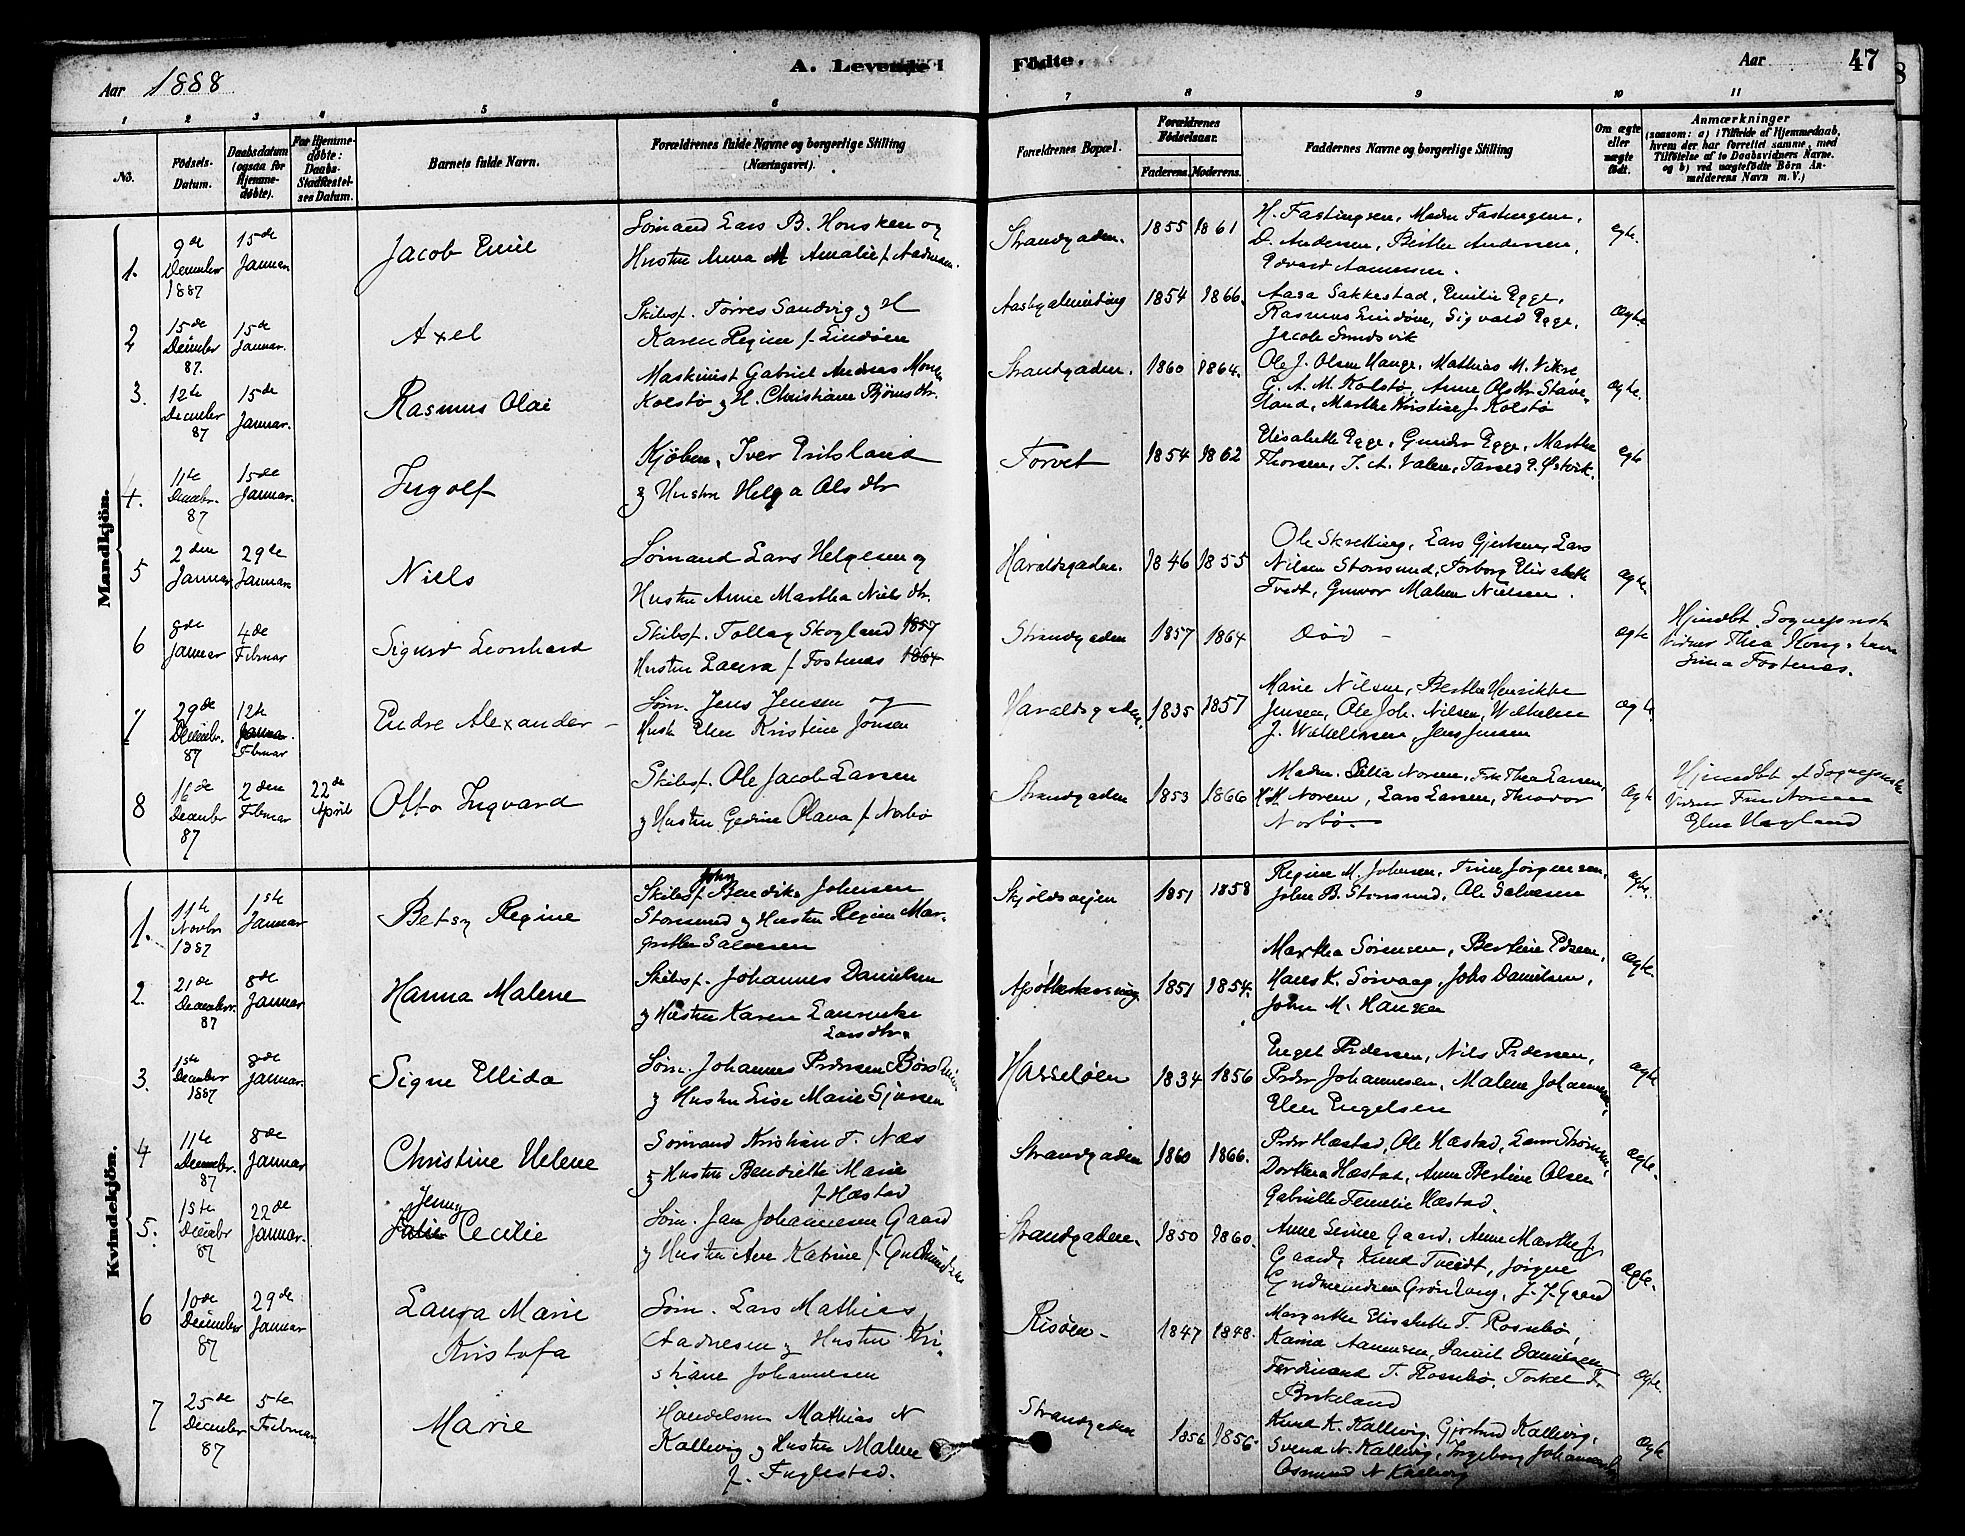 Aar 1888
A. Levende
Fødte.
Aar
47
1 2 3 4 5 6 7 8 9 10 11
No.
Fødsels-
Datum.
Daabsdatum
(ogsaa for
Hjemme-
døbte).
For Hjemme-
døbte:
Daabs-
Stadfæstel-
ses Datum.
Barnets fulde Navn.
Forældrenes fulde Navne og borgerlige Stilling
(Næringsvei).
Forældrenes Bopæl.
Forældrenes
Fødselsaar.
Faderens. Moderens.
Faddernes Navne og borgerlige Stilling
Om ægte
eller
uægte
født.
Anmærkninger
(saasom: a) i Tilfælde af Hjemmedaab,
hvem der har forrettet samme, med
Tilføielse af to Daabsvidners Navne.
og b) ved uægtefødte Børn An-
melderens Navn m. V.)
Mandkjön.
1.
9de
December
1887
15de
Januar
Jacob Emil
Sømand Lars B. Honsken og
Hustru Anna M Amalie f. Aadnesen.
Strandgaden.
1855 1861
H. Fastingsen, Madm Fastingsen,
D. Andersen, Berthe Andersen,
Edvard Aamensen.
egte.
2
15de
December
87.
15de
Januar.
Axel
Skibsf. Torres Sandvig og H
Karen Regine f. Lindøen
1854 1866.
Aasa Sakkestad, Emilie Egge,
Rasmus Lindøen, Sigvald Egge,
Jacob Sundsvik
Ægte
3.
12te
December
87
15de
Januar.
Rasmus Olai
Maskinist Gabriel Andreas Mons
Kolstø og H. Christiane Bjørnsdtr.
Strandgaden.
1860 1864.
Ole J. Olsen Hauge, Mathias M. Vikse
G. A. M. Kolstø, Anne Olsdtr Stave-
land, Marthe Kristine J. Kolstø
ægte.
4.
11te
Decebr.
87
15de
Januar.
Ingolf
Kjøbm. Iver Eriksland
og Hustru Helga Olsdtr
Torvet
1854 1862
Elisabeth Egge, Gunder Egge, Marthe
Thorsen, T. A. Valen, Tarald E. Østvik.
egte
5
2den
Januar
29te
Januar.
Niels
Sømand Lars Helgesen og
Hustru Anne Martha Nielsdtr.
Haraldsgaden.
1846 1855
Ole Skretting, Lars Gjertsen, Lars
Nilsen Storesund, Torborg Elisabeth
Tvedt, Gunvor Malene Nielsen.
ægte
6
8de
Januar
4de
Februar
Sigurd Leonhard
Skibsf. Tollag Skogland 1857
Hustru Laura f. Fostenæs 1864
Strandgaden
1857 1864
Død -
ægte
Hjmdbt. Sognepræst
Vidner Thea Kongshavn
Sina Fostenæs.
7
29de
Decembr.
87
12te
Januar.
Februar
Endre Alexander -
Søm. Jens Jensen og
Hust Elen Kristine Jonsen
Haraldsgaden,
1835 1857
Marie Nilsen, Berthe Henrikke
Jensen, Ole Joh. Nilsen, Wilhelm
J. Wilhelmsen, Jens Jensen
ægte
8
16de
December
87
2den
Februar
22de
April
Otto Ingvard
Skibsf. Ole Jacob Larsen
og Hustru Gedine Olava f. Norbø
Strandgaden
1853 1866
Madm. Silla Norem, Frk Thea Larsen,
H. H Norem, Lars Larsen, Theodor
Norbø.
Ægte
Hjmdbt af Sognepræst
Vidner Fru Norem
Elen Hagland
Kvindekjön.
1.
11te
Novbr
1887
1ste
Januar
Betsy Regine
John
Skibsf. Bendiks Johnsen
Storesund og Hustru Regine Mar-
grethe Salvesen
Skjoldsveien
1851 1858
Regine M. Johnsen, Trine Jørgensen,
John B. Storesund, Ole Salvesen
ægte.
2.
21de
December.
87
8de
Januar
Hanna Malene
Skibsf. Johannes Danielsen
og Hustru Karen Laurenke
Larsdtr.
1851 1854.
Martha Sørensen, Bertine Edsen,
Hans K. Sørvaag, Johs Danielsen,
John M. Hansen
ægte.
3.
1ste
December
1887
8de
Januar.
Signe Ellida
Søm. Johannes Pedersen
og Hustru Lise Marie Sjursen
Hasseløen
1834 1856
Engel Pedersen, Nils Pedersen,
Peder Johannesen, Malene Johannesen,
Elen Engelsen
ægte
4
11te
Decembr.
87
8de
Januar
Christine Helene
Sømand Kristian T. Næs
og Hustru Bendikte Marie
f. Hæstad
Strandgaden
1860 1866.
Peder Hæstad, Ole Hæstad,
Dorthea Hæstad, Anne Bertine Olsen
Gabrielle Femelie Hæstad.
ægte.
5.
1ste
Decembr
87
22de
Januar.
Jenny
Cecilie
Søm. Jan Johannesen Gaard
og Hustru Ane Katrine f. Gudmundsen
Strandgaden.
1850 1860.
Anne Serine Gaard, Anne Marthe J.
Gaard, Knud Tveidt, Jørgine
Gudmundsen Grønhaug, J. J. Gaard
Ægte.
6
10de
December
87
29de
Januar
Laura Marie
Kristofa
Søm. Lars Mathias
Aadnesen og Hustru Kri-
stiane Johannesen
Risøen -
1847 1848.
Margrethe Elisabeth T. Rossebø,
Karina Aamensen, Daniel Danielsen
Ferdinand T. Rossebø, Torkel T.
Birkeland
Ægte.
7
25de
December
87
5te
Februar
Marie
Handelsm Mathias N
Kallevig og Hustru Malene
f. Fuglestad.
Strandgaden
1856 1856.
Knud K. Kallevig, Gjertrud Kallevig,
Svend N. Kallevig, Ingeborg Johannesen,
Osmund N Kallevig
Ægte